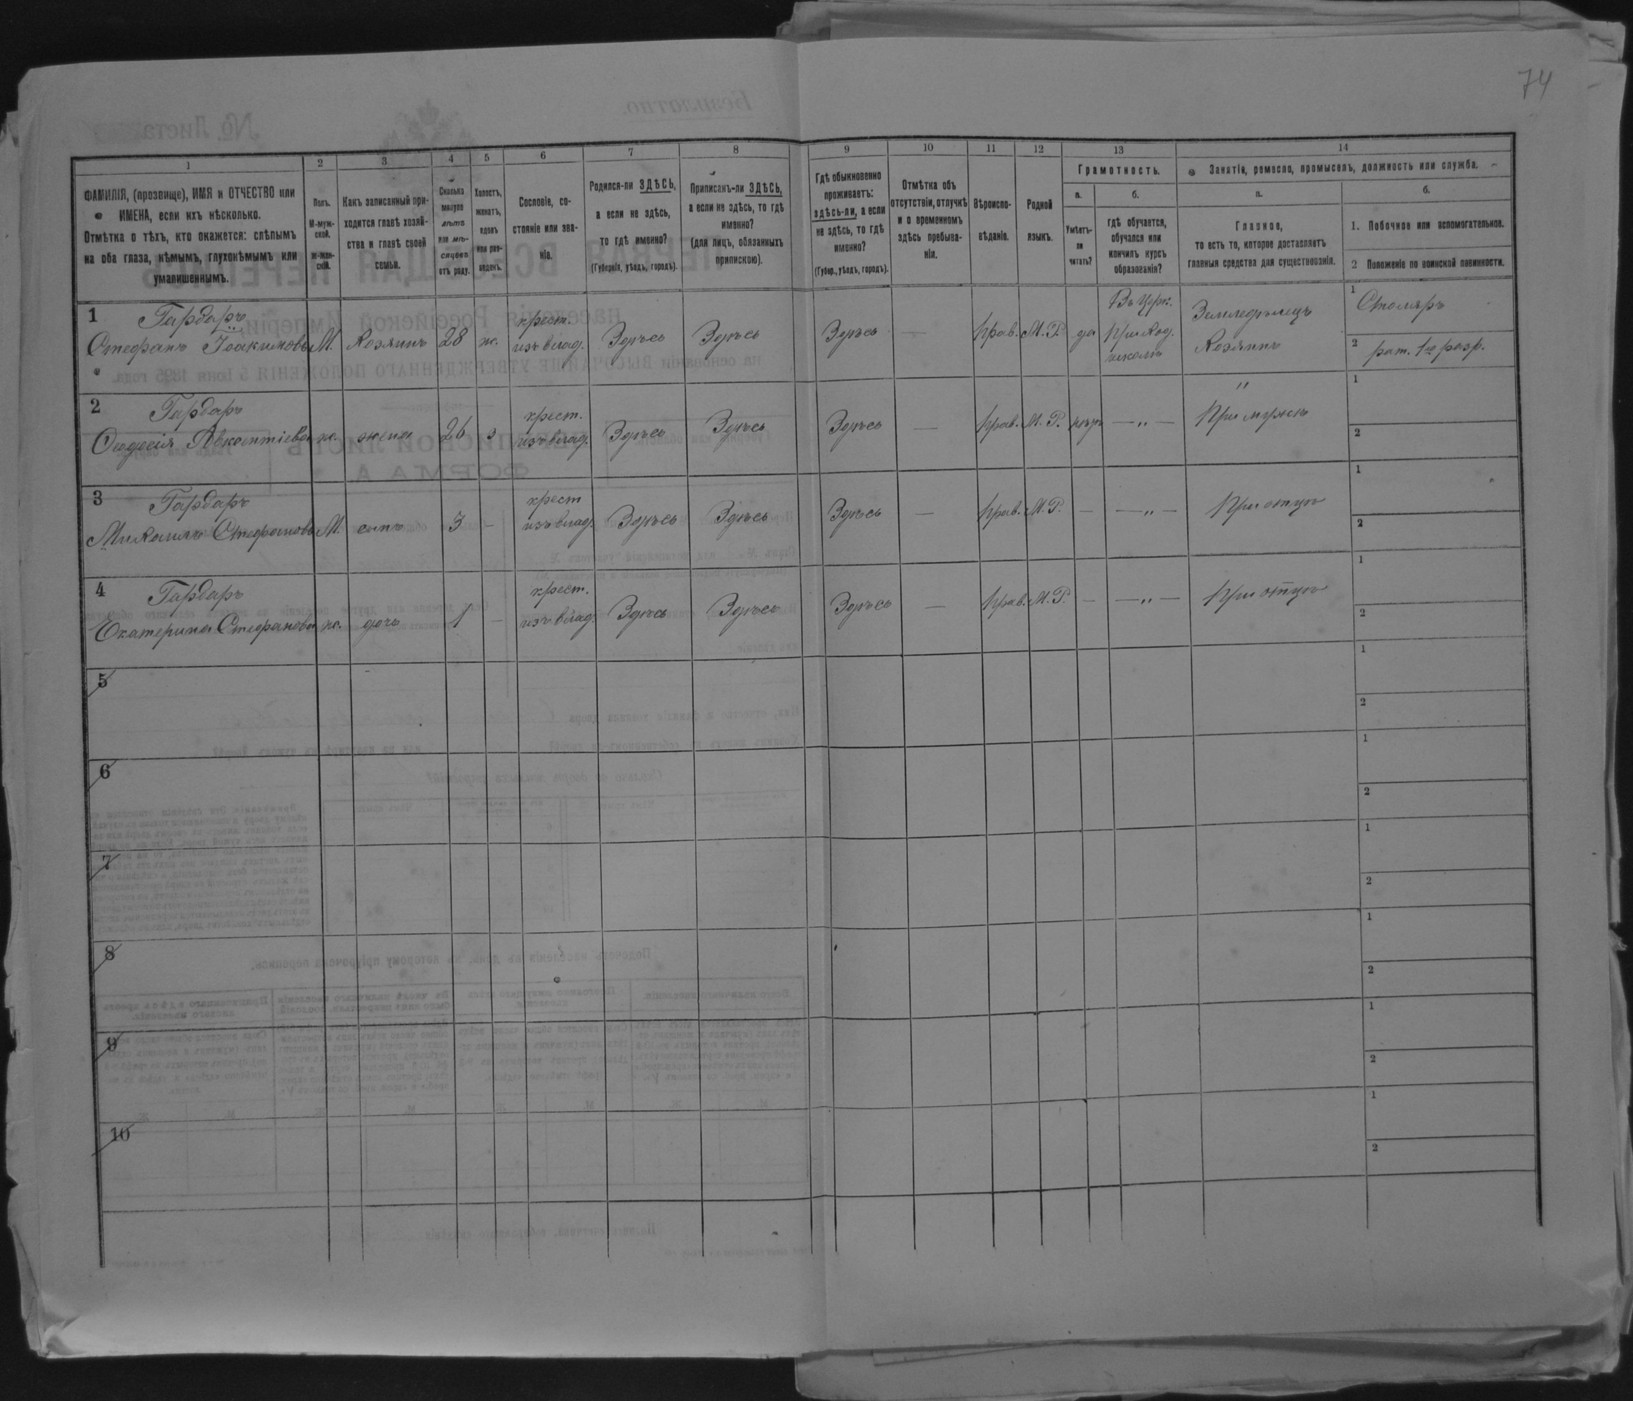 74
1
2
3
4
5
6
7
8
9
10
11
12
13
14
ФАМИЛІЯ, (прозвище), ИМЯ и ОТЧЕСТВО или
ИМЕНА, если ихъ нѣсколько.
Отмѣтка о тѣхъ, кто окажется: слѣпымъ
на оба глаза, нѣмымъ, глухонѣмымъ или
умалишеннымъ.
Полъ.
М-муж-
ской.
Ж-жен-
скій.
Какъ записанный при-
ходится главѣ хозяй-
ства и главѣ своей
семьи.
Сколько
минуло
лѣтъ
или мѣ-
сяцевъ
отъ роду.
Холостъ,
женатъ,
вдовъ
или раз-
веденъ.
Сословіе, со-
стояніе или зва-
ніе.
Родился-ли ЗДѢСЬ,
а если не здѣсь,
то гдѣ именно?
(Губернія, уѣздъ, городъ).
Приписанъ-ли ЗДѢСЬ,
а если не здѣсь, то гдѣ
именно?
(для лицъ, обязанныхъ
припискою).
Гдѣ обыкновенно
проживаетъ:
здѣсь-ли, а если
не здѣсь, то гдѣ
именно?
(Губер., уѣздъ, городъ).
Отмѣтка объ
отсутствіи, отлучкѣ
и о временномъ
здѣсь пребыва-
ніи.
Вѣроиспо-
вѣданіе.
Родной
языкъ.
Грамотность.
а.
Умѣетъ-
ли
читать?
б.
гдѣ обучается,
обучался или
кончилъ курсъ
образованія?
Занятіе, ремесло, промыселъ, должность или служба.
а.
Главное,
то есть то, которое доставляетъ
главныя средства для существованія.
б.
1. Побочное или вспомогательное.
2 Положеніе по воинской повинности.
1 Гарбаръ
Стефанъ Іоакимовъ М. хозяинъ 28 ж. крест. изъ влад. Здѣсь Здѣсь Здѣсь — прав. М. Р. да Въ Црк. приход. школѣ Земледѣлецъ Хозяинъ
1 Столяръ
2 рат. 1го разр.
2 Гарбаръ
Ѳеодосія ж. жена 26 з крест. изъ влад. Здѣсь Здѣсь Здѣсь — прав. М. Р. нѣтъ — „ — При мужѣ
1
2
3 Гарбаръ
Михаилъ Стефановъ М. сынъ 3 - крест изъ влад. Здѣсь Здѣсь Здѣсь — прав. М. Р. — — „ — При отцѣ
1
2
4 Гарбаръ
Екатерина Стефанова ж. дочь 1 - крест. изъ влад. Здѣсь Здѣсь Здѣсь — прав. М. Р. — — „ — При отцѣ
1
2
5
1
2
6
1
2
7
1
2
8
1
2
9
1
2
10
1
2